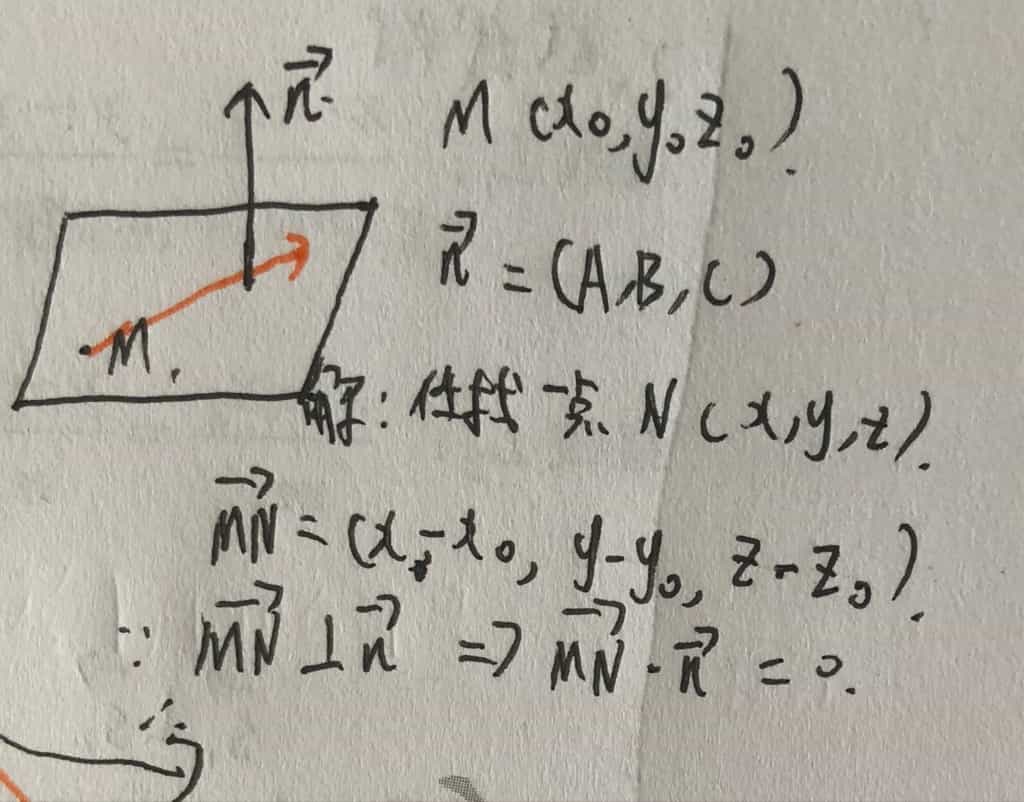 n⃗
M (x₀, y₀, z₀).
n⃗ = (A, B, C)
M.
解: 任找一点 N (x, y, z).
MN⃗ = (x - x₀, y - y₀, z - z₀).
∵ MN⃗ ⊥ n⃗ => MN⃗ · n⃗ = 0.
∴